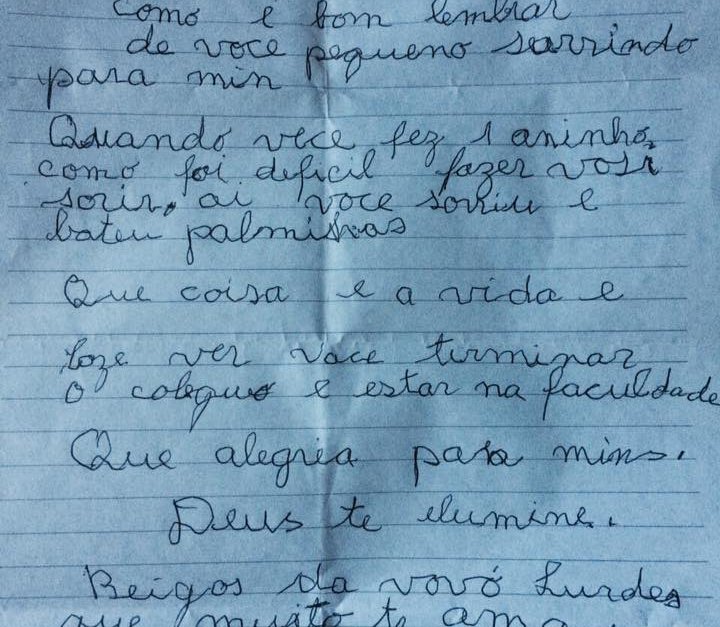 Como e bom lembrar
de voce pequeno sorrindo
para min
Quando voce fez 1 aninho,
como foi deficil fazer você
sorir, ai voce sorriu e
bateu palminhas
Que coisa e a vida e
hoze ver voce terminar
o coleguo e estar na faculdade
Que alegria para mins.
Deus te elumine.
Beigos da vovó Lurdes
que muito te ama.